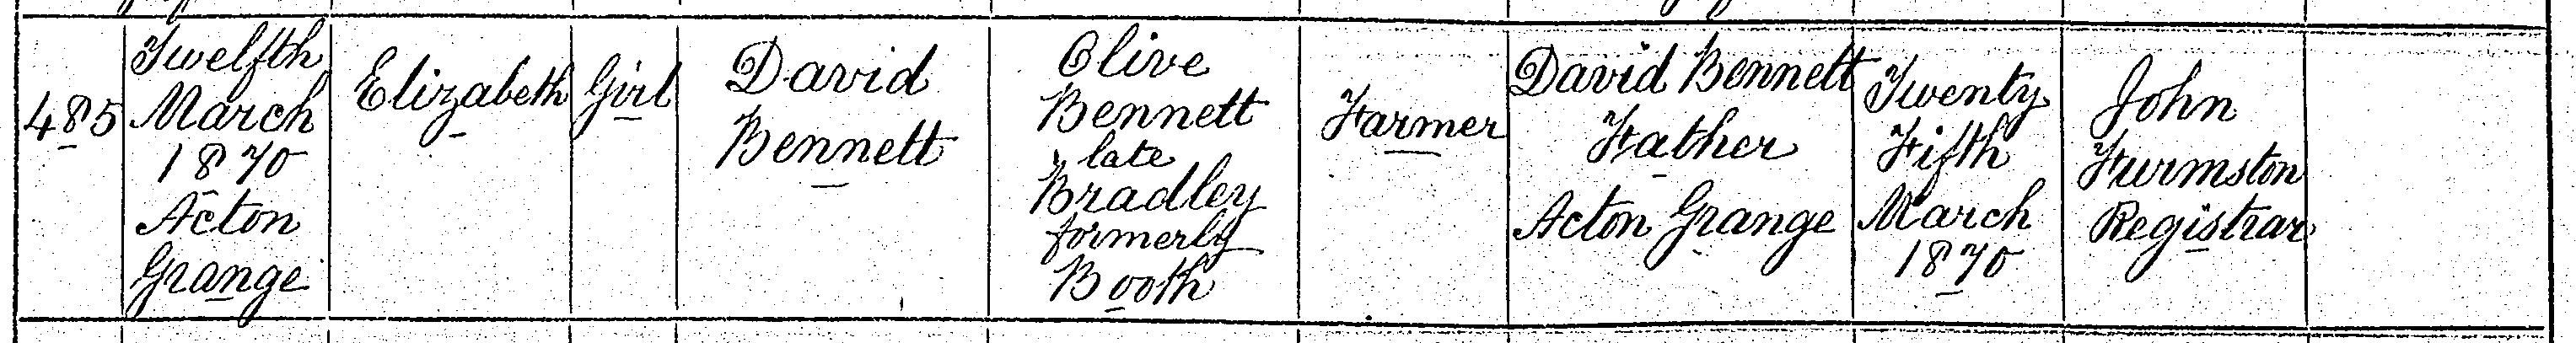 485
Twelfth
March
1870
Acton
Grange
Elizabeth
Girl
David
Bennett
Olive
Bennett
late
Bradley
formerly
Booth
Farmer
David Bennett
Father
Acton Grange
Twenty
Fifth
March
1870
John
Furmston
Registrar